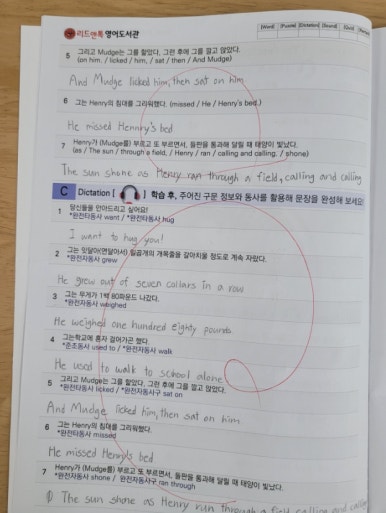 리드앤톡 영어도서관
[Word] [Puzzle] [Dictation] [Sound] [Quiz]
5 그리고 Mudge는 그를 핥았다, 그런 후에 그를 깔고 앉았다.
(on him. / licked / him, / sat / then / And Mudge)
And Mudge licked him, then sat on him
6 그는 Henry의 침대를 그리워했다. (missed / He / Henry's bed.)
He missed Hennry's bed
7 Henry가 (Mudge를) 부르고 또 부르면서, 들판을 통과해 달릴 때 태양이 빛났다.
(as / The sun / through a field, / Henry / ran / calling and calling. / shone)
The sun shone as Henry ran through a field, calling and calling
C Dictation [ ] 학습 후, 주어진 구문 정보와 동사를 활용해 문장을 완성해 보세요
1 당신들을 안아드리고 싶어요!
*완전타동사 want / *완전타동사 hug
I want to hug you!
2 그는 잇달아(연달아서) 일곱개의 개목줄을 갈아치울 정도로 계속 자랐다.
*완전자동사 grew
He grew out of seven collars in a row
3 그는 무게가 1백 80파운드 나갔다.
*완전자동사 weighed
He weighed one hundred eighty pounds.
4 그는학교에 혼자 걸어가곤 했다.
*준조동사 used to / *완전자동사 walk
He used to walk to school alone
5 그리고 Mudge는 그를 핥았다, 그런 후에 그를 깔고 앉았다.
*완전타동사 licked / *완전자동사구 sat on
And Mudge licked him, then sat on him
6 그는 Henry의 침대를 그리워했다.
*완전타동사 missed
He missed Henry's bed
7 Henry가 (Mudge를) 부르고 또 부르면서, 들판을 통과해 달릴 때 태양이 빛났다.
*완전자동사 shone / 완전자동사구 ran through
The sun shone as Henry run through a field calling and calling